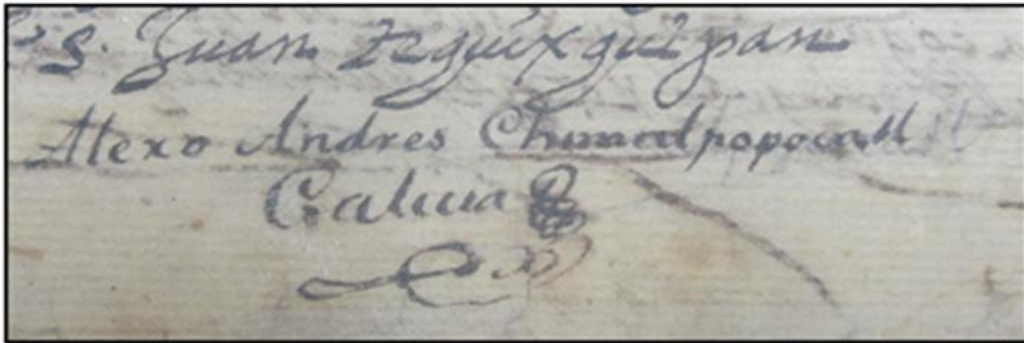 S. Juan Tequixquipan
Alexo Andres Chimalpopocatl
Galicia